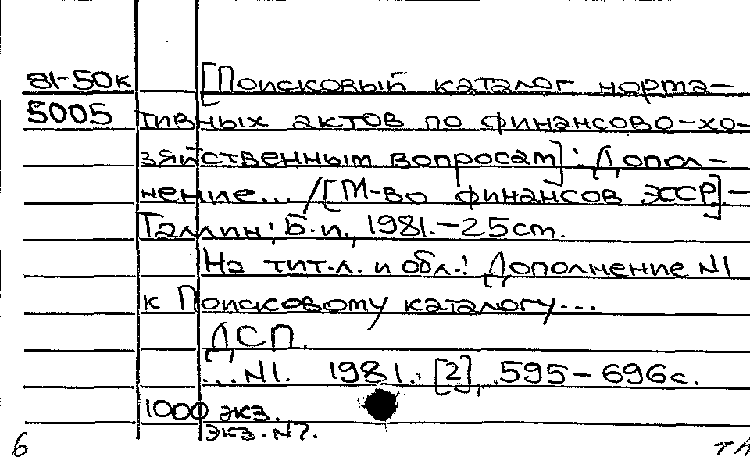 81-50к [Поисковый каталог норма-
5005 тивных актов по финансово-хо-
зяйственным вопросам]: Допол-
нение... /[М-во финансов ЭССР].-
Таллин: Б.и., 1981.-25см.
На тит.л. и обл.: Дополнение №1
к Поисковому каталогу...
ДСП.
...№1. 1981. [2], 595-696с.
1000 экз.
экз. №7.
6 ТА